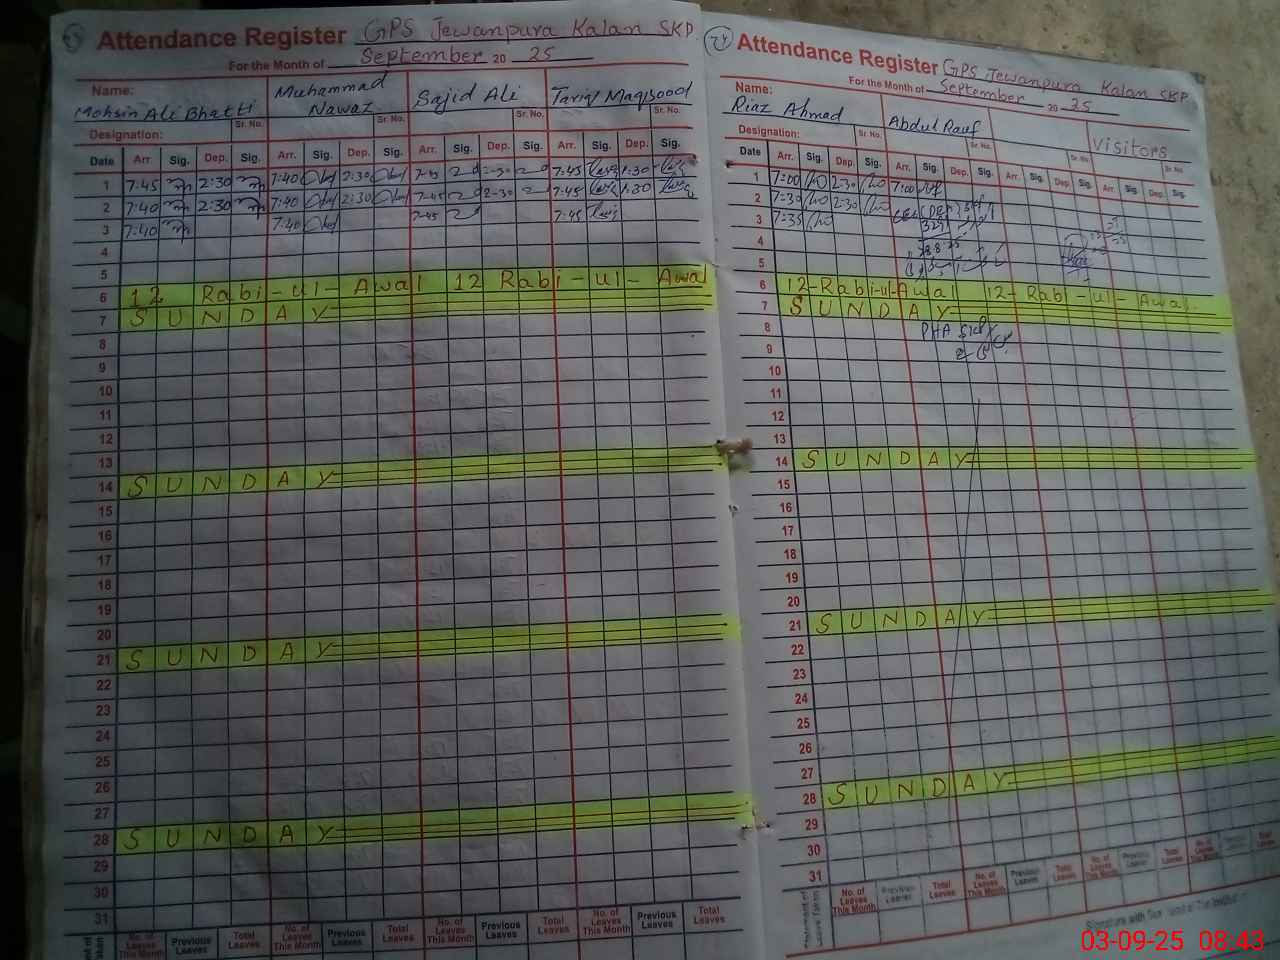 Attendance Register GPS Jewanpura Kalan SKP
For the Month of September 20 25
Name: Mohsin Ali Bhatti Muhammad Nawaz Sajid Ali Tariq Maqsood
Sr. No. Sr. No. Sr. No. Sr. No.
Designation:
Date Arr. Sig. Dep. Sig. Arr. Sig. Dep. Sig. Arr. Sig. Dep. Sig. Arr. Sig. Dep. Sig.
1 7:45 2:30 7:40 2:30 7-45 2-30 7:45 1:30
2 7:40 2:30 7:40 2:30 7-45 2-30 7:45 1:30
3 7:40 7:40 7-45 7:45
4
5
6 12 Rabi-ul-Awal 12 Rabi-ul-Awal
7 SUNDAY
8
9
10
11
12
13
14 SUNDAY
15
16
17
18
19
20
21 SUNDAY
22
23
24
25
26
27
28 SUNDAY
29
30
31
No. of Leaves This Month Previous Leaves Total Leaves No. of Leaves This Month Previous Leaves Total Leaves No. of Leaves This Month Previous Leaves Total Leaves No. of Leaves This Month Previous Leaves Total Leaves
24 Attendance Register GPS Jewanpura Kalan SKP
For the Month of September 20 25
Name: Riaz Ahmad Abdul Rauf Visitors
Sr. No. Sr. No. Sr. No. Sr. No.
Designation:
Date Arr. Sig. Dep. Sig. Arr. Sig. Dep. Sig. Arr. Sig. Dep. Sig. Arr. Sig. Dep. Sig.
1 7:00 2:30 7:00
2 7:30 2:30
3 7:35
4
5
6 12-Rabi-ul-Awal 12-Rabi-ul-Awal.
7 SUNDAY
8
9
10
11
12
13
14 SUNDAY
15
16
17
18
19
20
21 SUNDAY
22
23
24
25
26
27
28 SUNDAY
29
30
31
Statement of Leave Taken No. of Leaves This Month Previous Leaves Total Leaves No. of Leaves This Month Previous Leaves Total Leaves No. of Leaves This Month Previous Leaves Total Leaves No. of Leaves This Month Previous Leaves Total Leaves
03-09-25 08:43